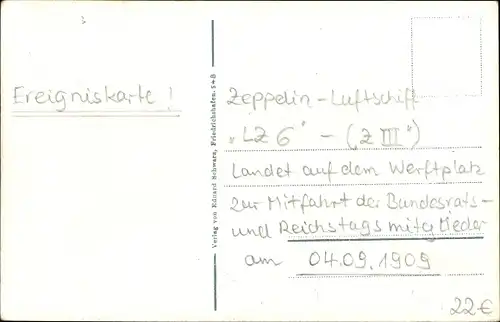 Ereigniskarte!
Verlag von Eduard Schwarz, Friedrichshafen.
Zeppelin-Luftschiff
„LZ 6" - (Z III")
Landet auf dem Werftplatz
zur Mitfahrt der Bundesrats-
und Reichstagsmitglieder
am 04.09.1909
22€